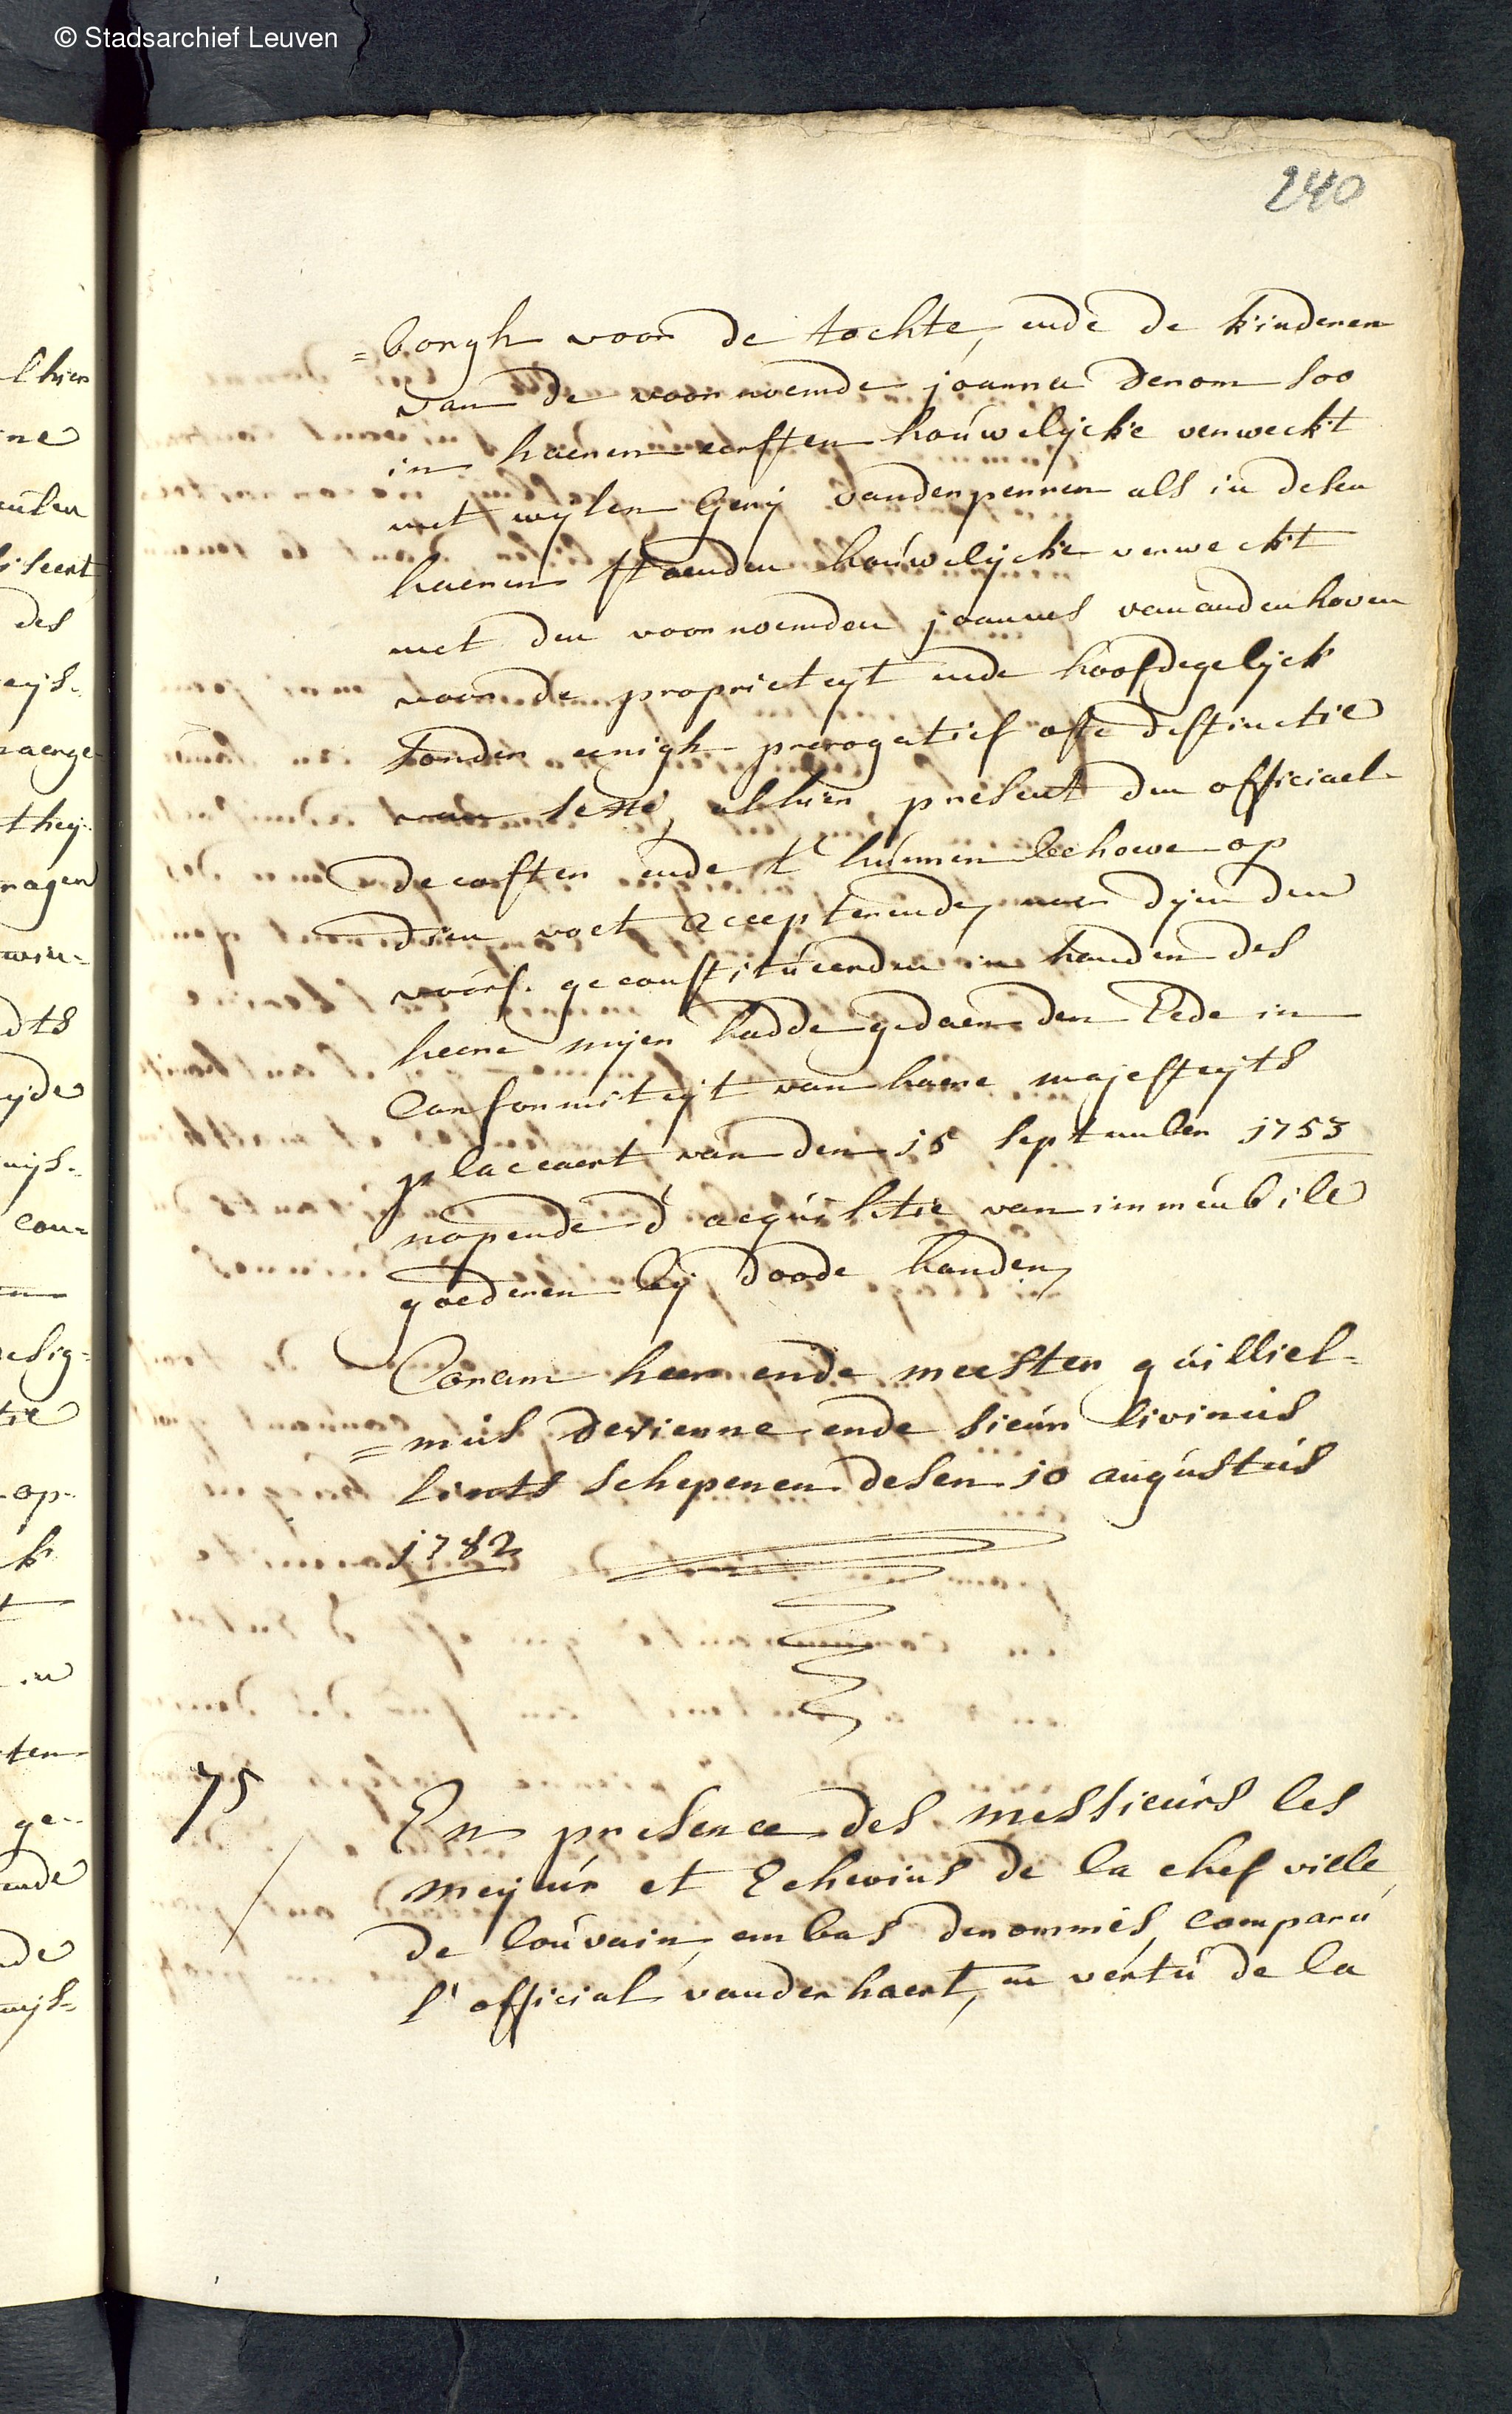 © Stadsarchief Leuven
240
=borgh voor de tochte, ende de kinderen
van de voornoemde joanna Denom soo
in haeren eersten houwelijcke verweckt
met wylen Gerij vandenpennen als in desen
haeren staenden houwelijcke verweckt
met den voornoemden joannes vanaudenhoven
voor de proprieteyt ende hoofdegelijck
sonder eenigh prerogatief ofte destinctie
van sexe, alhier present den officiael
decoster ende t' hunnen behoeve op
dien voet accepterende, naer dyen den
voors. geconstitueerden in handen des
heere meyer hadde gedaen den Eede in
Conformiteyt van haere majesteyts
placcaert van den 15 september 1753
nopende d' acquisitie van immeubile
goederen bij doode handen,
Coram heer ende meester guilliel=
=mus devienne ende sieur livinus
lints schepenen desen 10 augustus
1782
75
En presence des messieurs les
meyeur et Echevins de la chef ville
de louvain, embas denommés, comparu
l' official vanderhaert, en vertu de la